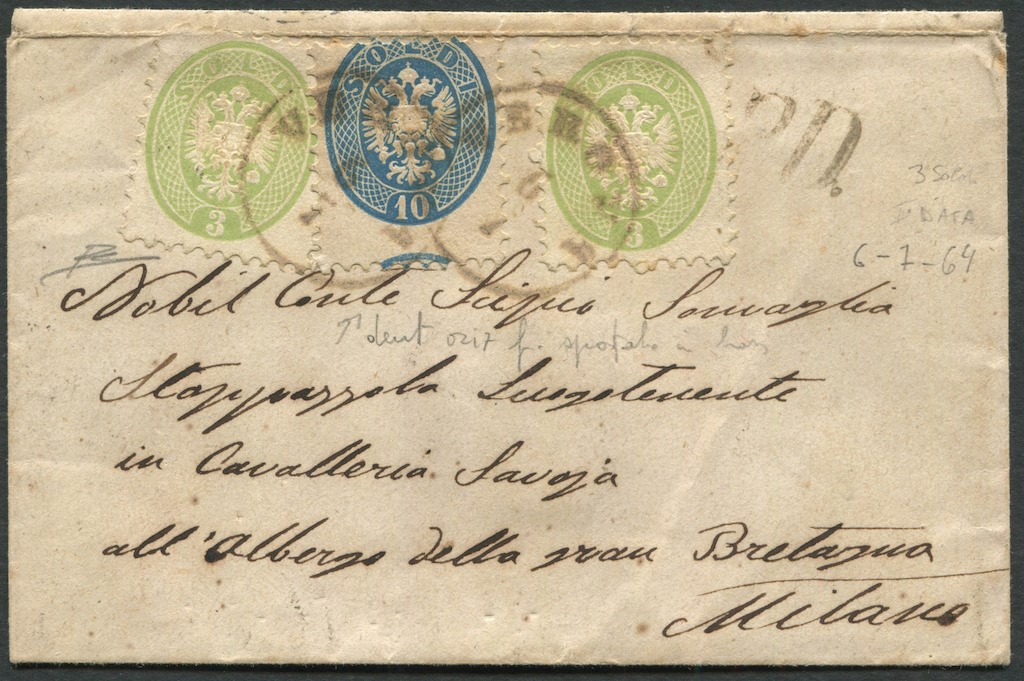 SOLDI 3
SOLDI 10
SOLDI 3
P.D.
3 SOLDI
I DATA
6-7-64
Nobil Conte Scipio Somaglia
1ª dent
Stoppazzola Luogotenente
in Cavalleria Savoja
all'Albergo della gran Bretagna
Milano